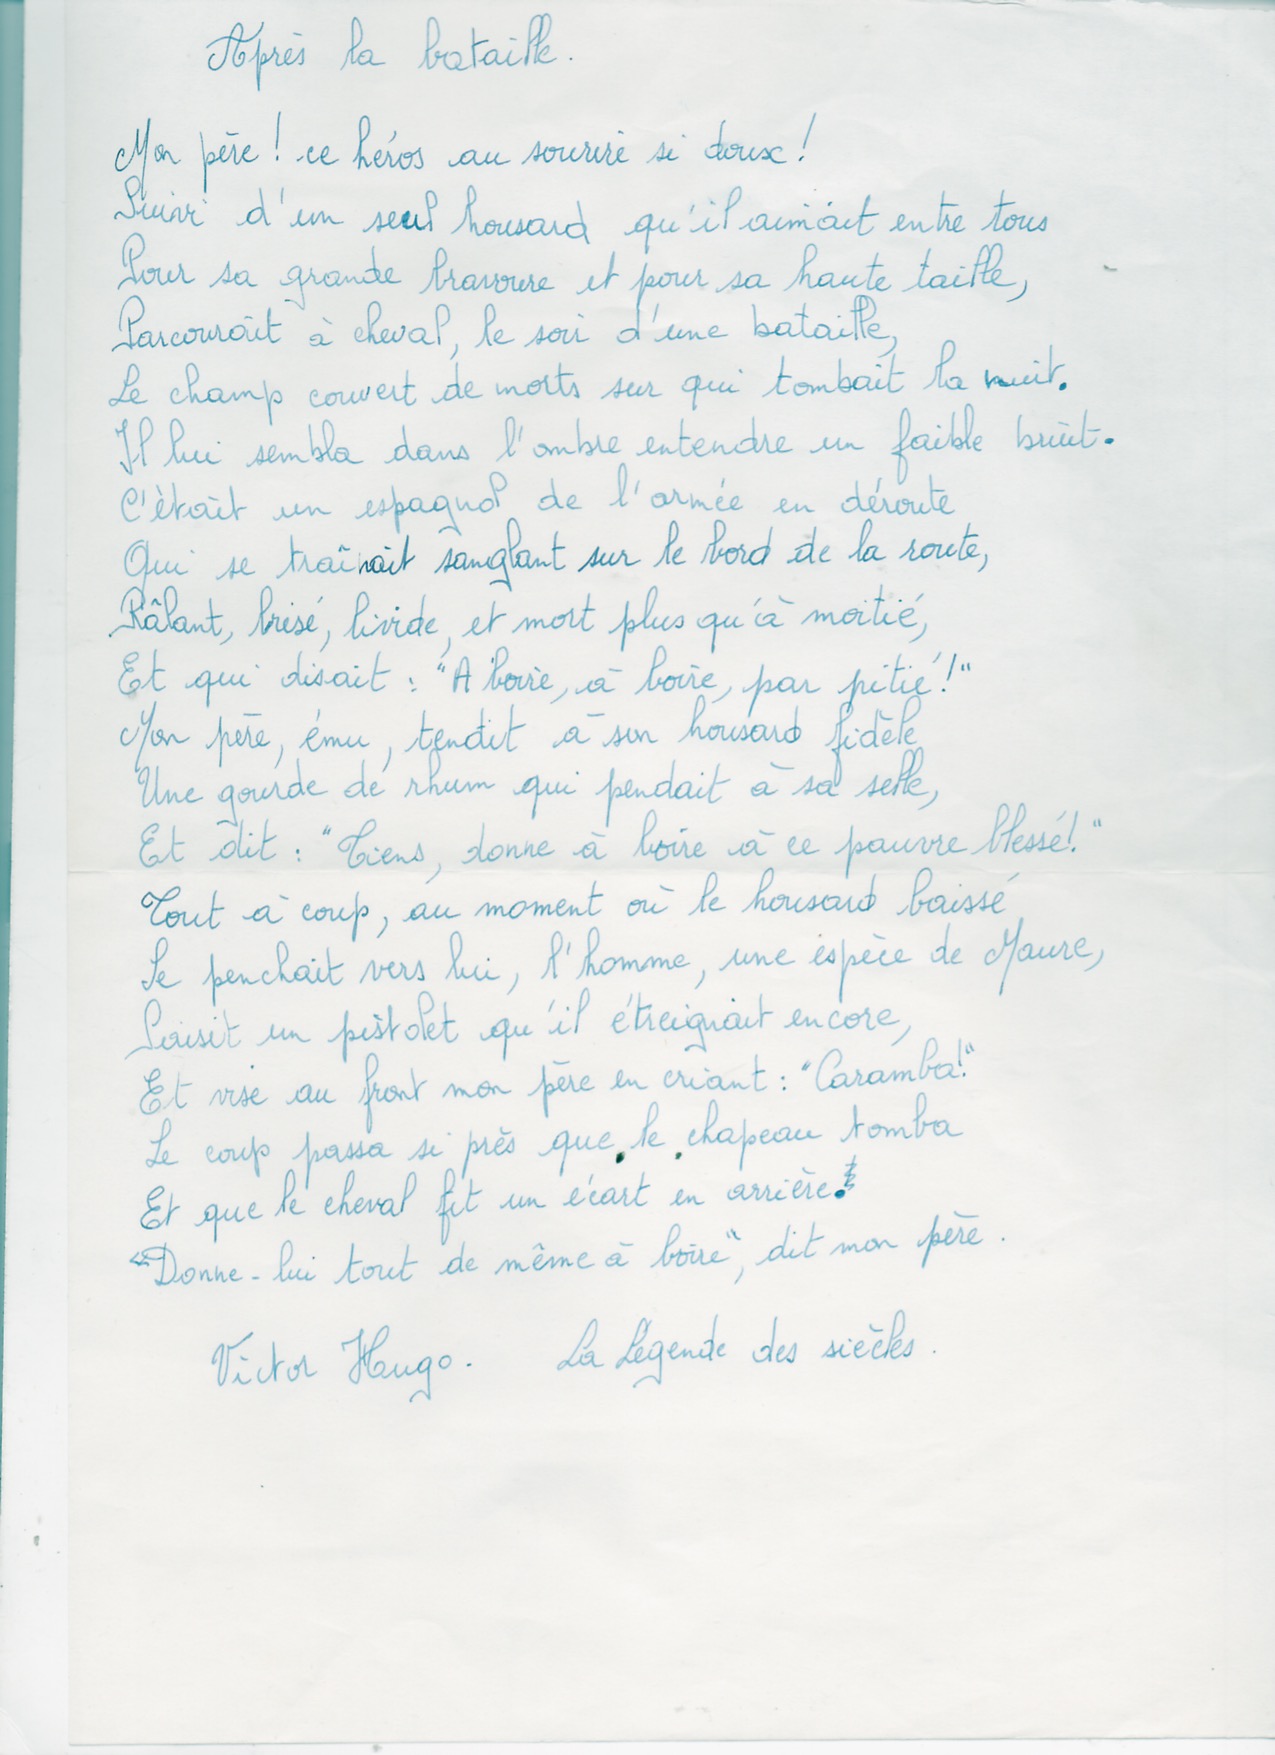 Après la bataille.
Mon père ! ce héros au sourire si doux !
Suivi d'un seul housard qu'il aimait entre tous
Pour sa grande bravoure et pour sa haute taille,
Parcourait à cheval, le soir d'une bataille,
Le champ couvert de morts sur qui tombait la nuit.
Il lui sembla dans l'ombre entendre un faible bruit.
C'était un espagnol de l'armée en déroute
Qui se traînait sanglant sur le bord de la route,
Râlant, brisé, livide, et mort plus qu'à moitié,
Et qui disait : "A boire, à boire, par pitié !"
Mon père, ému, tendit à son housard fidèle
Une gourde de rhum qui pendait à sa selle,
Et dit : "Tiens, donne à boire à ce pauvre blessé !"
Tout à coup, au moment où le housard baissé
Se penchait vers lui, l'homme, une espèce de Maure,
Saisit un pistolet qu'il étreignait encore,
Et vise au front mon père en criant : "Caramba !"
Le coup passa si près que le chapeau tomba
Et que le cheval fit un écart en arrière.
"Donne-lui tout de même à boire", dit mon père.
Victor Hugo. La Légende des siècles.